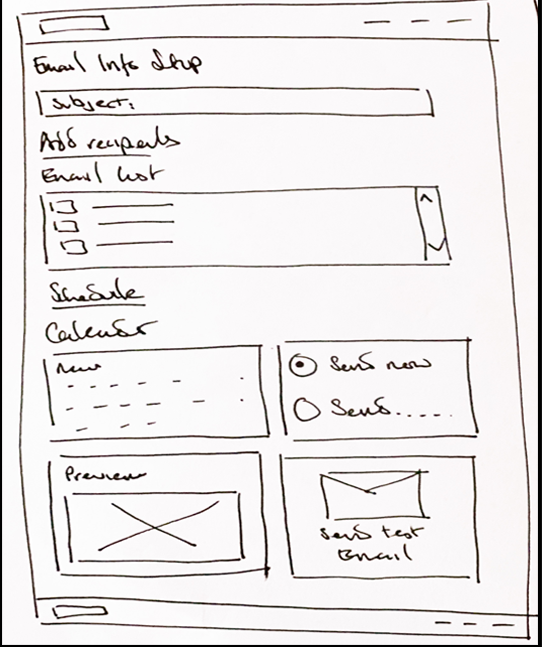 Email Info Setup
Subject:
Add recipients
Email List
Schedule
Calendar
Send now
Send.....
Preview
Send test
Email